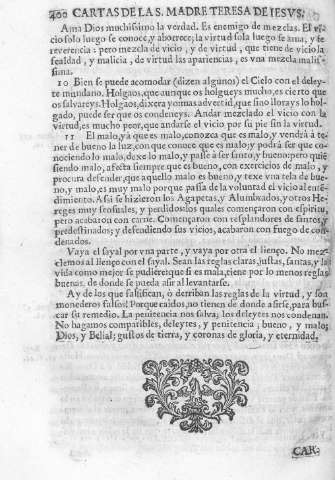 400 CARTAS DE LA S. MADRE TERESA DE IESVS.
Ama Dios muchissimo la verdad. Es enemigo de mezclas. El vi-
cio solo luego se conoce, y aborrece; la virtud sola luego se ama, y se
reverencia: pero mezcla de vicio, y de virtud, que tiene de vicio la
fealdad, y malicia, de virtud las apariencias, es vna mezcla malis-
sima.
10 Bien se puede acomodar (dizen algunos) el Cielo con el deley-
te mundano. Holgaos, que aunque os holgueys mucho, es cierto que
os salvareys. Holgaos, dixera yo: mas advertid, que sino llorays lo hol-
gado, puede ser que os condeneys. Andar mezclado el vicio con la
virtud, es mucho peor, que andarse el vicio por su pie sin la virtud.
11 El malo, ya que es malo, conozca que es malo, y vendrá à te-
ner de bueno la luz, con que conoce que es malo; y podrá ser que co-
nociendo lo malo, dexe lo malo, y passe à ser santo, y bueno: pero quiē
siendo malo, afecta siempre que es bueno, con exercicios de malo, y
procura defender, que aquello malo es bueno, y texe vna tela de bue-
no, y malo, es muy malo porque passa de la voluntad el vicio al entē-
dimiento. Assi se hizieron los Agapetas, y Alumbrados, y otros He-
reges muy sensuales, y perdidos; los quales començaron con espiritu,
pero acabaron con carne. Començaron con resplandores de santos, y
predestinados; y defendiendo sus vicios, acabaron con fuego de con-
denados.
Vaya el sayal por vna parte, y vaya por otra el lienço. No mez-
clemos al lienço con el sayal. Sean las reglas claras, justas, santas, y la
vida como mejor se pudiere; que si es mala, tiene por lo menos reglas
buenas, de donde se pueda asir al levantarse.
Ay de los que falsifican, ò derriban las reglas de la virtud, y son
monederos falsos! Porque caidos, no tienen de donde asirse, para bus-
car su remedio. La penitencia nos salva, los deleytes nos condenan.
No hagamos compatibles, deleytes, y penitencia; bueno, y malo;
Dios, y Belial; gustos de tierra, y coronas de gloria, y eternidad.
CAR-